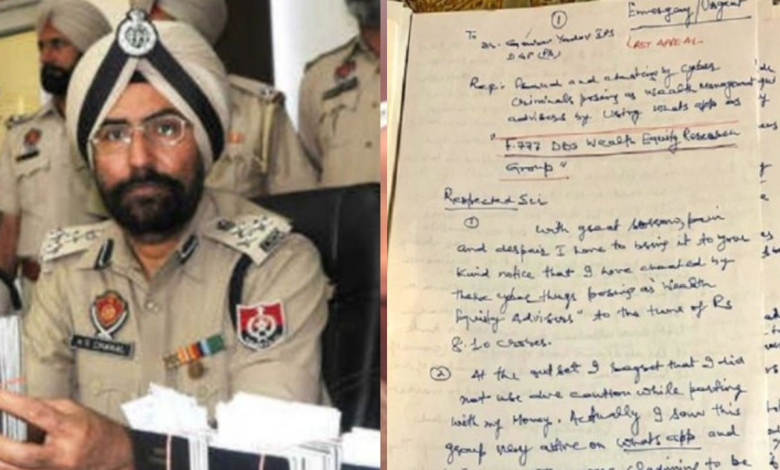 A S CHAHAL
①
Emergency/Urgent
To
Dr. Gaurav Yadav IPS
DGP (PB)
LAST APPEAL
Rep: Fraud and cheating by cyber
criminals posing as wealth Management
advisers by using whats app as
"F.777 DBS Wealth Equity Research
Group"
Respected Sir
① With great sorrow, pain
and despair I have to bring it to your
kind notice that I have cheated by
these cyber thugs posing as "wealth
Equity advisers" to the tune of Rs
8.10 crores.
② At the outset I regret that I did
not use due caution while parting
with my money. Actually I saw this
group very active on whats app and